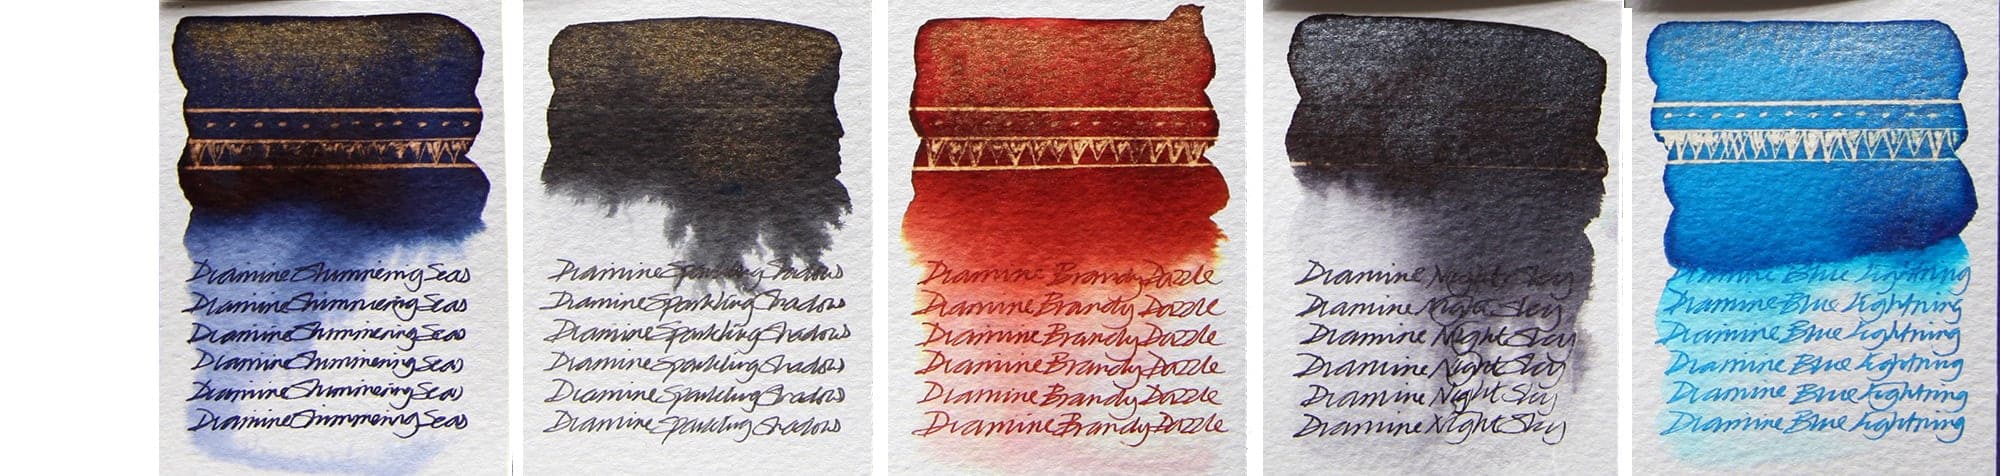 Diamine Shimmering Seas
Diamine Shimmering Seas
Diamine Shimmering Seas
Diamine Shimmering Seas
Diamine Shimmering Seas
Diamine Shimmering Seas
Diamine Sparkling Shadows
Diamine Sparkling Shadows
Diamine Sparkling Shadows
Diamine Sparkling Shadows
Diamine Sparkling Shadows
Diamine Sparkling Shadows
Diamine Brandy Dazzle
Diamine Brandy Dazzle
Diamine Brandy Dazzle
Diamine Brandy Dazzle
Diamine Brandy Dazzle
Diamine Brandy Dazzle
Diamine Night Sky
Diamine Night Sky
Diamine Night Sky
Diamine Night Sky
Diamine Night Sky
Diamine Night Sky
Diamine Blue Lightning
Diamine Blue Lightning
Diamine Blue Lightning
Diamine Blue Lightning
Diamine Blue Lightning
Diamine Blue Lightning